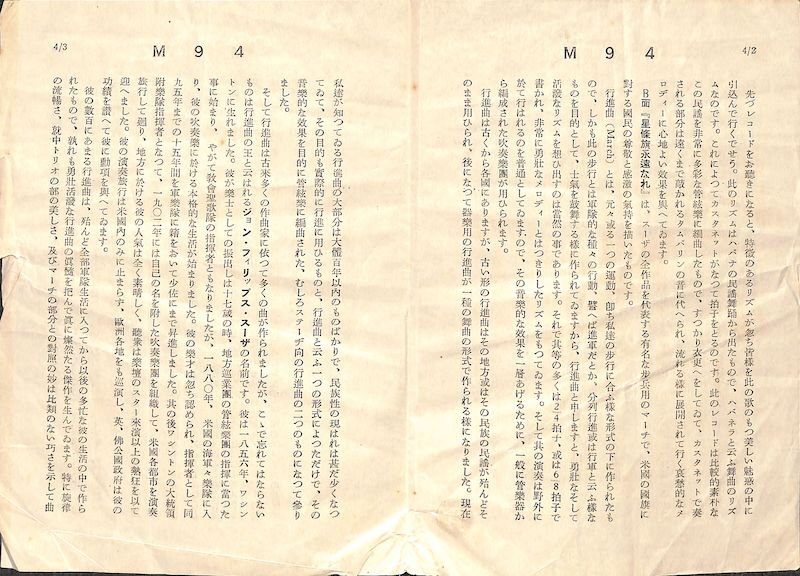 4/2
M 9 4
先づレコードをお聽きになると、特徴のあるリズムが忽ち皆樣を此の歌のもつ美しい魅惑の中に
引込んで行くでせう。此のリズムはハバナの民謠舞踊から出たもので、ハバネラと云ふ舞曲のリズ
ムなのです。これによつてカスタネットがなつて拍子をとるのです。此のレコードは比較的素朴な
この民謠を非常に多彩な管絃樂に編曲したもので、すつかり衣更へをしてゐて、カスタネットで奏
される部分は遠くまで敲かれるタムバリンの音に代へられ、流れる樣に展開されて行く哀愁的なメ
ロディーに心地よい效果を與へてゐます。
B面『星條旗永遠なれ』は、スーザの全作品を代表する有名な歩兵用のマーチで、米國の國旗に
對する國民の尊敬と感激の氣持を描いたものです。
行進曲(March)とは、元々或る一つの運動、卽ち私達の歩行に合ふ樣な形式の下に作られたも
ので、しかも此の歩行とは軍隊的な種々の行動、譬へば進軍だとか、分列行進或は行軍と云ふ樣な
ものを目的として、士氣を鼓舞する樣に作られてゐますから、行進曲と申しますと、勇壯なそして
活潑なリズムを想ひ出すのは當然の事であります。それで其等の多くは2/4拍子、或は6/8拍子で
書かれ、非常に勇壯なメロディーとはつきりしたリズムをもつてゐます。そして其の演奏は野外に
於て行はれるのを普通としてゐますので、その音樂的な效果を一層あげるために、一般に管樂器か
ら編成された吹奏樂團が用ひられます。
行進曲は古くから各國にありますが、古い形の行進曲はその地方或はその民族の民謠が殆んどそ
のまま用ひられ、後になつて器樂用の行進曲が一種の舞曲の形式で作られる樣になりました。現在
4/3
M 9 4
私達が知つてゐる行進曲の大部分は大體百年以内のものばかりで、民族性の現はれは甚だ少くなつ
てゐて、その目的も實際的に行進に用ひるものと、行進曲と云ふ一つの形式によつただけで、その
音樂的な效果を目的に管絃樂に編曲された、むしろステーヂ向の行進曲の二つのものになつて參り
ました。
そして行進曲は古來多くの作曲家に依つて多くの曲が作られましたが、こゝで忘れてはならない
ものは行進曲の王と云はれるジョン・フィリップス・スーザの名前です。彼は一八五六年、ワシン
トンに生れました。彼が樂士としての振出しは十七歳の時、地方巡業團の管絃樂團の指揮に當つた
事に始まり、やがて敎會聖歌隊の指揮者ともなりましたが、一八八〇年、米國の海軍々樂隊に入
り、彼の吹奏樂に於ける本格的な生活が始まりました。彼の樂才は忽ち認められ、指揮者として同
九五年までの十五年間を軍樂隊に籍をおいて少佐にまで昇進しました。其の後ワシントンの大統領
附樂隊指揮者となつて、一九〇二年には自己の名を附した吹奏樂團を組織して、米國各都市を演奏
旅行して廻り、地方に於ける彼の人氣は全く素晴しく、聽衆は樂壇のスター來演以上の熱狂を以て
迎へました。彼の演奏旅行は米國内のみに止まらず、歐洲各地をも巡演し、英、佛公國政府は彼の
功績を讚へて彼に勳項を與へてゐます。
彼の數百にあまる行進曲は、殆んど全部軍隊生活に入つてから以後の多忙な彼の生活の中で作ら
れたもので、孰れも勇壯活潑な行進曲の眞髓を把んで眞に燦然たる傑作を生んでゐます。特に旋律
の流暢さ、就中トリオの部の美しさ、及びマーチの部分との對照の妙は比類のない巧さを示して曲